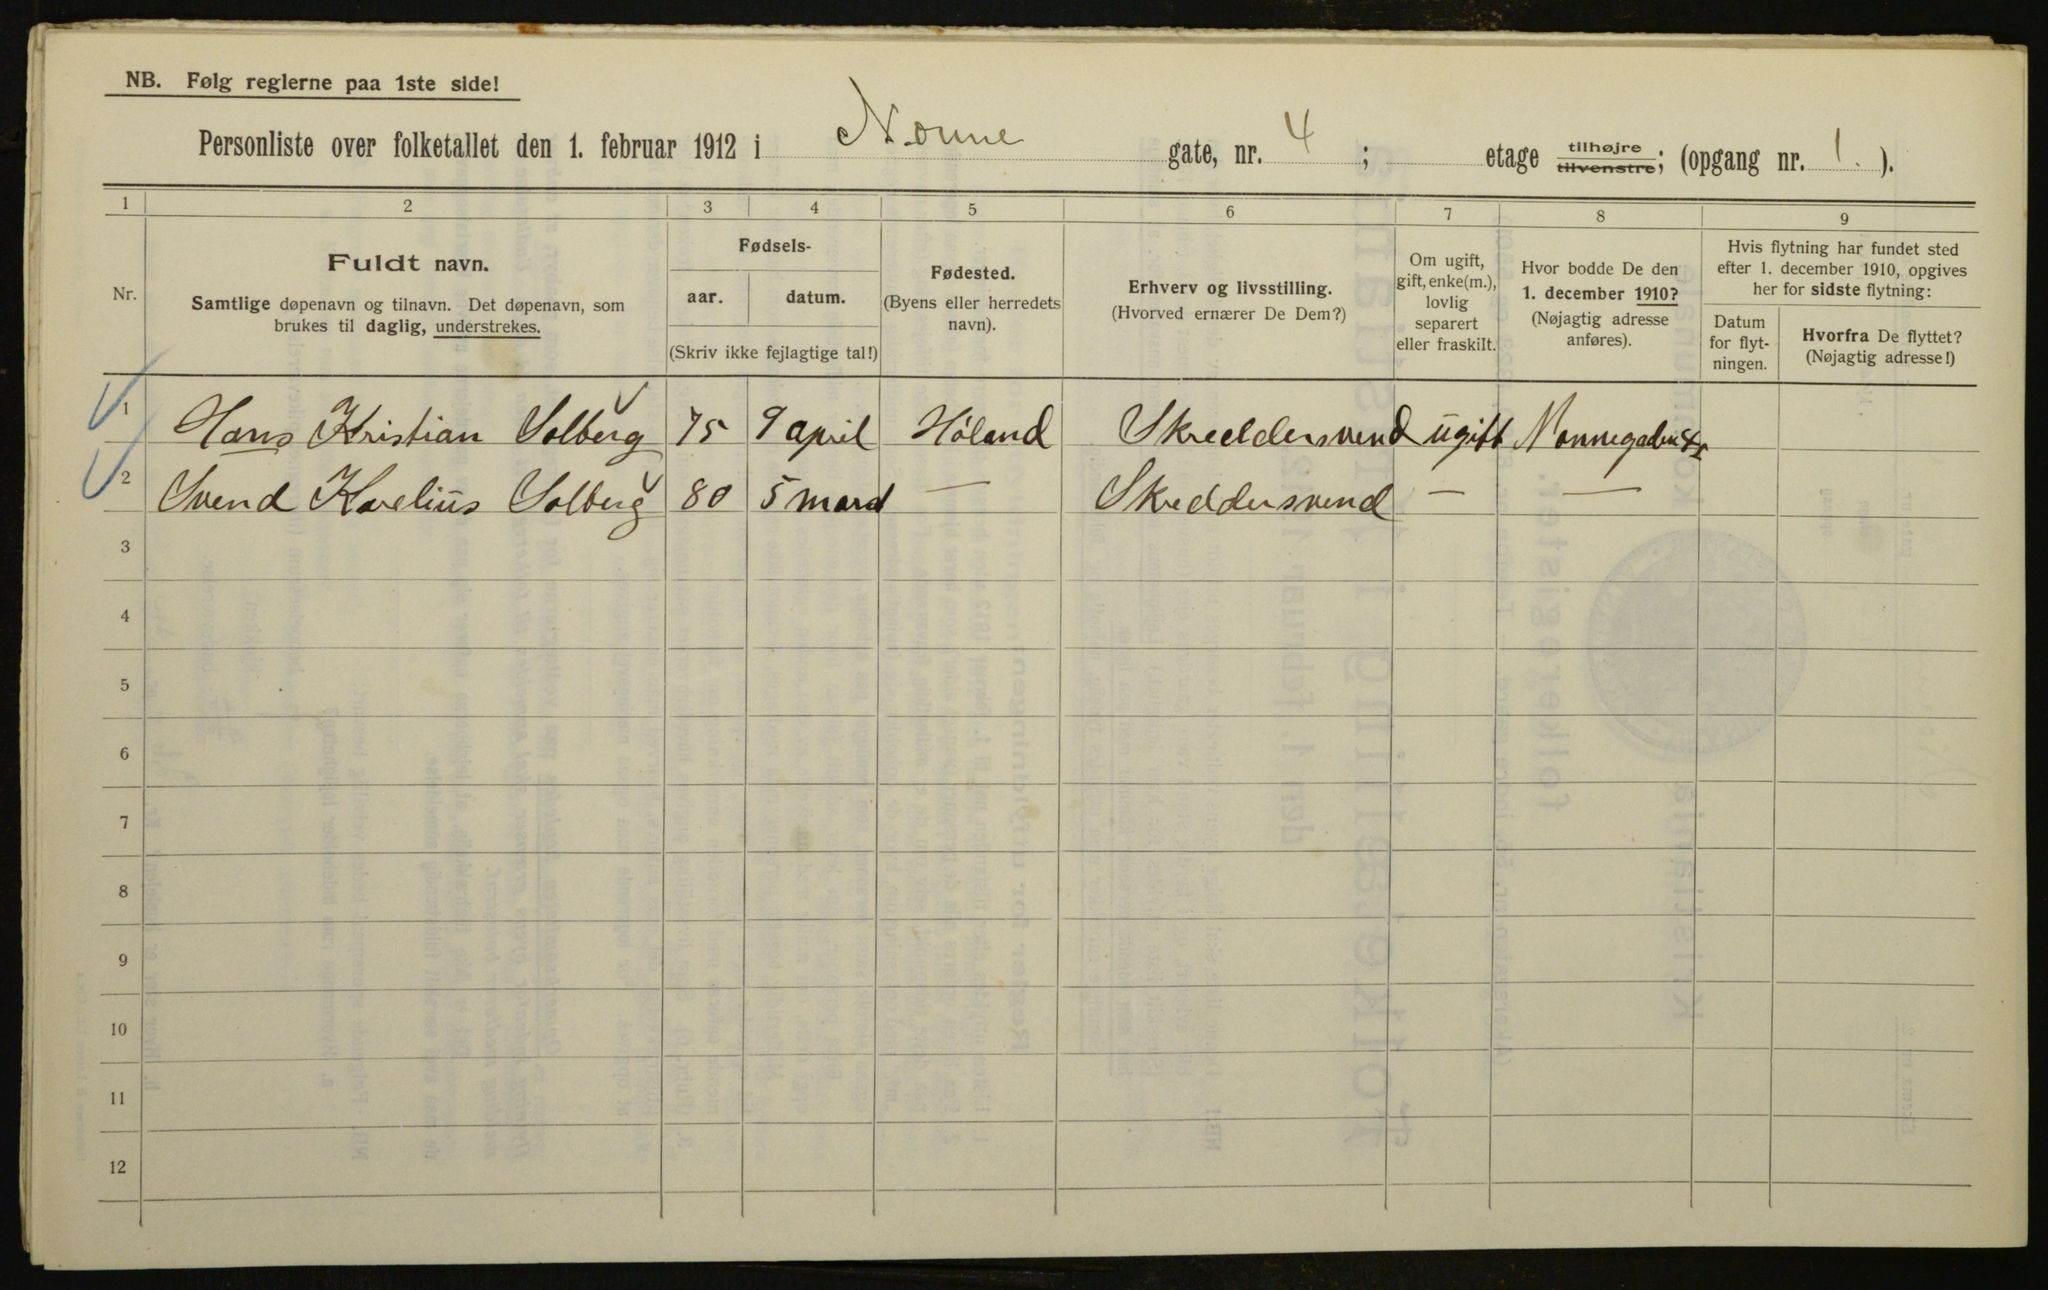 NB. Følg reglerne paa 1ste side!
Personliste over folketallet den 1. februar 1912 i Nonne gate, nr. 4 ; etage tilhøjre tilvenstre; (opgang nr. 1. ).
1 2 3 4 5 6 7 8 9
Nr.
Fuldt navn.
Samtlige døpenavn og tilnavn. Det døpenavn, som
brukes til daglig, understrekes.
Fødsels-
aar. datum.
(Skriv ikke fejlagtige tal!)
Fødested.
(Byens eller herredets
navn).
Erhverv og livsstilling.
(Hvorved ernærer De Dem?)
Om ugift,
gift, enke(m.),
lovlig
separert
eller fraskilt.
Hvor bodde De den
1. december 1910?
(Nøjagtig adresse
anføres).
Hvis flytning har fundet sted
efter 1. december 1910, opgives
her for sidste flytning:
Datum
for flyt-
ningen.
Hvorfra De flyttet?
(Nøjagtig adresse!)
1 Hans Kristian Solberg 75 9 april Høland Skreddersvend ugift Nonnegaden 4
2 Svend Karelius Solberg 80 5 mars — Skreddersvend — —
3
4
5
6
7
8
9
10
11
12